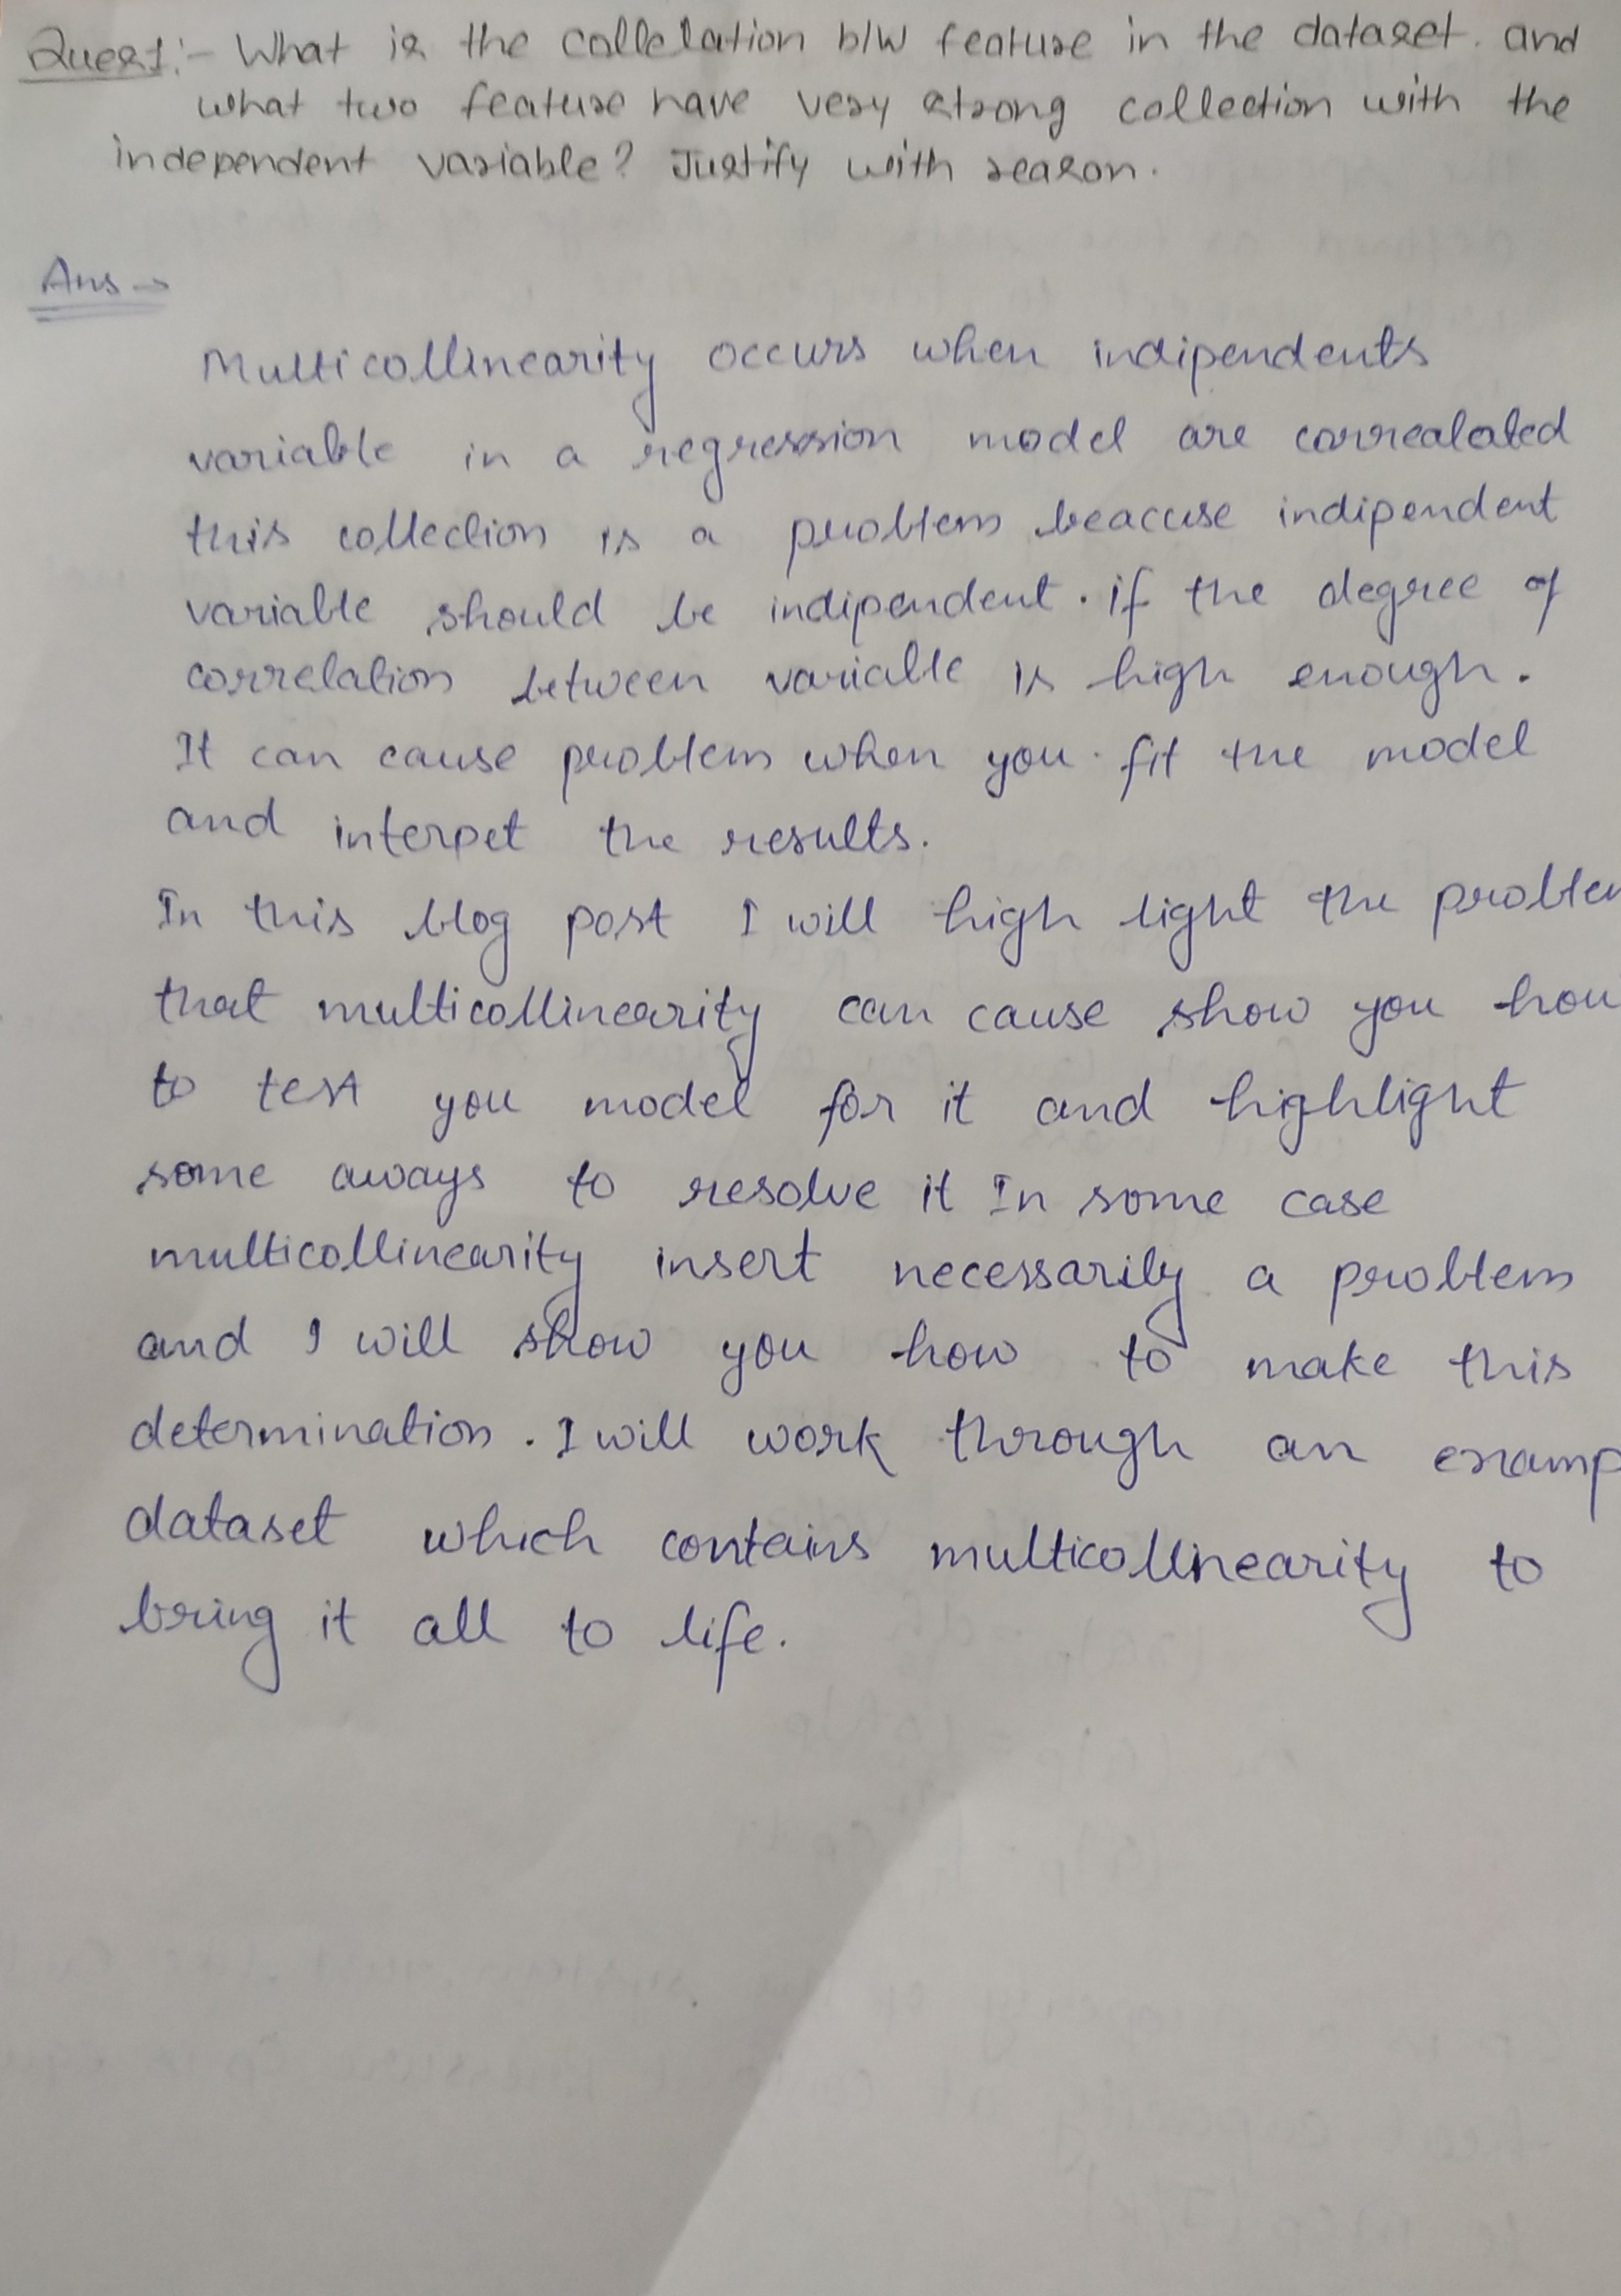 Ques1:- What is the collelation b/w feature in the dataset. and
what two feature have very strong collection with the
independent variable? Justify with reason.
Ans →
Multicollinearity occurs when indipendents
variable in a regression model are correalated
this collection is a problem beacuse indipendent
variable should be indipendent. if the degree of
correlation between variable is high enough.
It can cause problem when you fit the model
and interpet the results.
In this blog post I will high light the problem
that multicollinearity can cause show you how
to test you model for it and highlight
some aways to resolve it In some case
multicollinearity insert necessarily a problem
and I will show you how to make this
determination. I will work through an examp
dataset which contains multicollinearity to
bring it all to life.